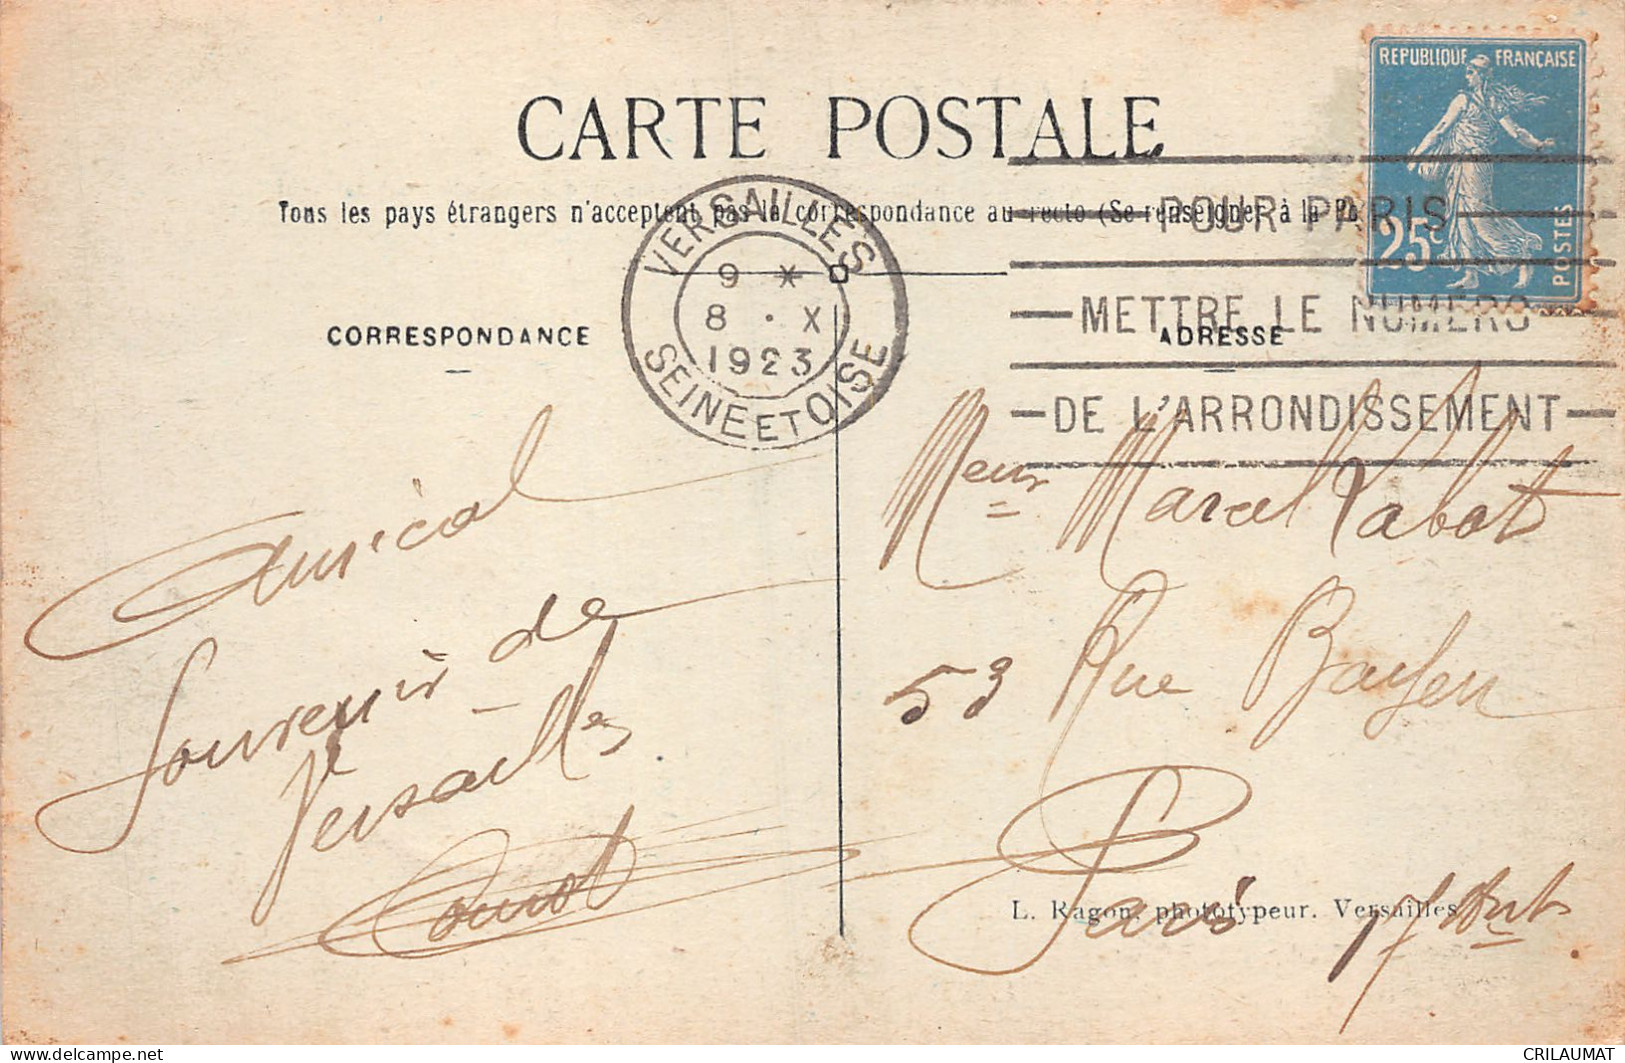 CARTE POSTALE
Tous les pays étrangers n'acceptent pas la correspondance au recto (Se renseigner à la Po
REPUBLIQUE FRANÇAISE
25c
POSTES
VERSAILLES
9 *
8 . X
1923
SEINE ET OISE
POUR PARIS
METTRE LE NUMERO
DE L'ARRONDISSEMENT
CORRESPONDANCE
ADRESSE
Amical
Souvenir de
Versailles
Meur Marcel Labot
53 Rue Bayen
Paris 17
L. Ragon, phototypeur. Versailles
delcampe.net
CRILAUMAT